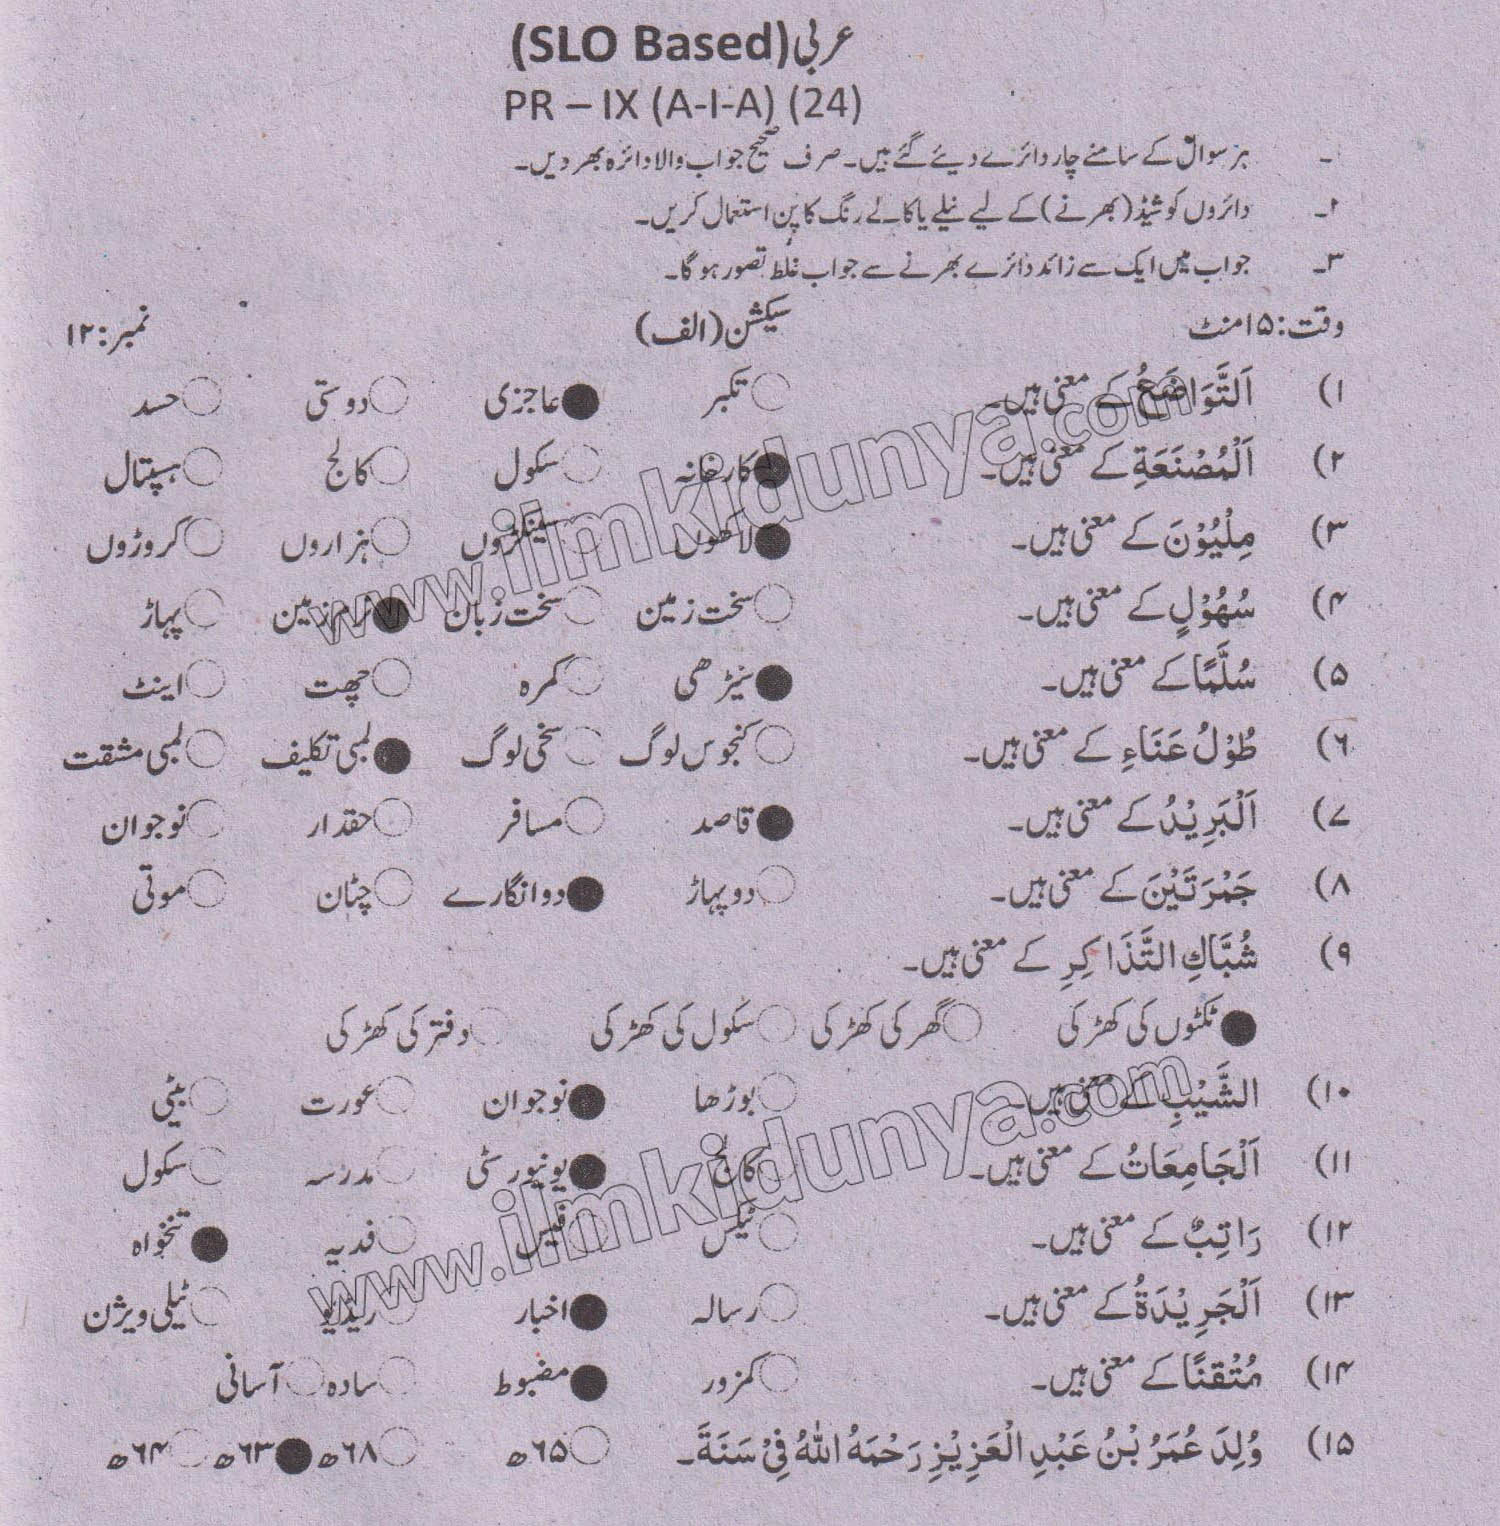 عربی (SLO Based)
PR – IX (A-I-A) (24)
۱۔ ہر سوال کے سامنے چار دائرے دیئے گئے ہیں۔ صرف صحیح جواب والا دائرہ بھر دیں۔
۲۔ دائروں کو شیڈ (بھرنے) کے لیے نیلے یا کالے رنگ کا پن استعمال کریں۔
۳۔ جواب میں ایک سے زائد دائرے بھرنے سے جواب غلط تصور ہو گا۔
وقت: ۱۵ منٹ سیکشن (الف) نمبر: ۱۲
۱) اَلتَّوَاضَعُ کے معنی ہیں۔ تکبر عاجزی دوستی حسد
۲) اَلْمُصْنَعَةِ کے معنی ہیں۔ کارخانہ سکول کالج ہسپتال
۳) مِلْیُوْنَ کے معنی ہیں۔ لاکھوں سینکڑوں ہزاروں کروڑوں
۴) سُهُوْلٍ کے معنی ہیں۔ سخت زمین سخت زبان نرم زمین پہاڑ
۵) سُلَّمًا کے معنی ہیں۔ سیڑھی کمرہ چھت اینٹ
۶) طُوْلُ عَنَاءِ کے معنی ہیں۔ کنجوس لوگ سخی لوگ لمبی تکلیف لمبی مشقت
۷) اَلْبَرِیْدُ کے معنی ہیں۔ قاصد مسافر حقدار نوجوان
۸) جَمْرَتَیْنَ کے معنی ہیں۔ دو پہاڑ دو انگارے چٹان موتی
۹) شُبَّاكِ التَّذَاكِرِ کے معنی ہیں۔
ٹکٹوں کی کھڑکی گھر کی کھڑکی سکول کی کھڑکی دفتر کی کھڑکی
۱۰) الشَّیْبِ کے معنی ہیں۔ بوڑھا نوجوان عورت بیٹی
۱۱) اَلْجَامِعَاتُ کے معنی ہیں۔ کالج یونیورسٹی مدرسہ سکول
۱۲) رَاتِبٌ کے معنی ہیں۔ ٹیکس فیس فدیہ تنخواہ
۱۳) اَلْجَرِیْدَةُ کے معنی ہیں۔ رسالہ اخبار ریڈیو ٹیلی ویژن
۱۴) مُتْقنًا کے معنی ہیں۔ کمزور مضبوط سادہ آسانی
۱۵) وُلِدَ عُمَرُ بْنُ عَبْدِ الْعَزِیْزِ رَحْمَهُ اللهُ فِیْ سَنَةَ۔ ۶۵ھ ۶۸ھ ۶۳ھ ۶۴ھ
www.ilmkidunya.com
www.ilmkidunya.com